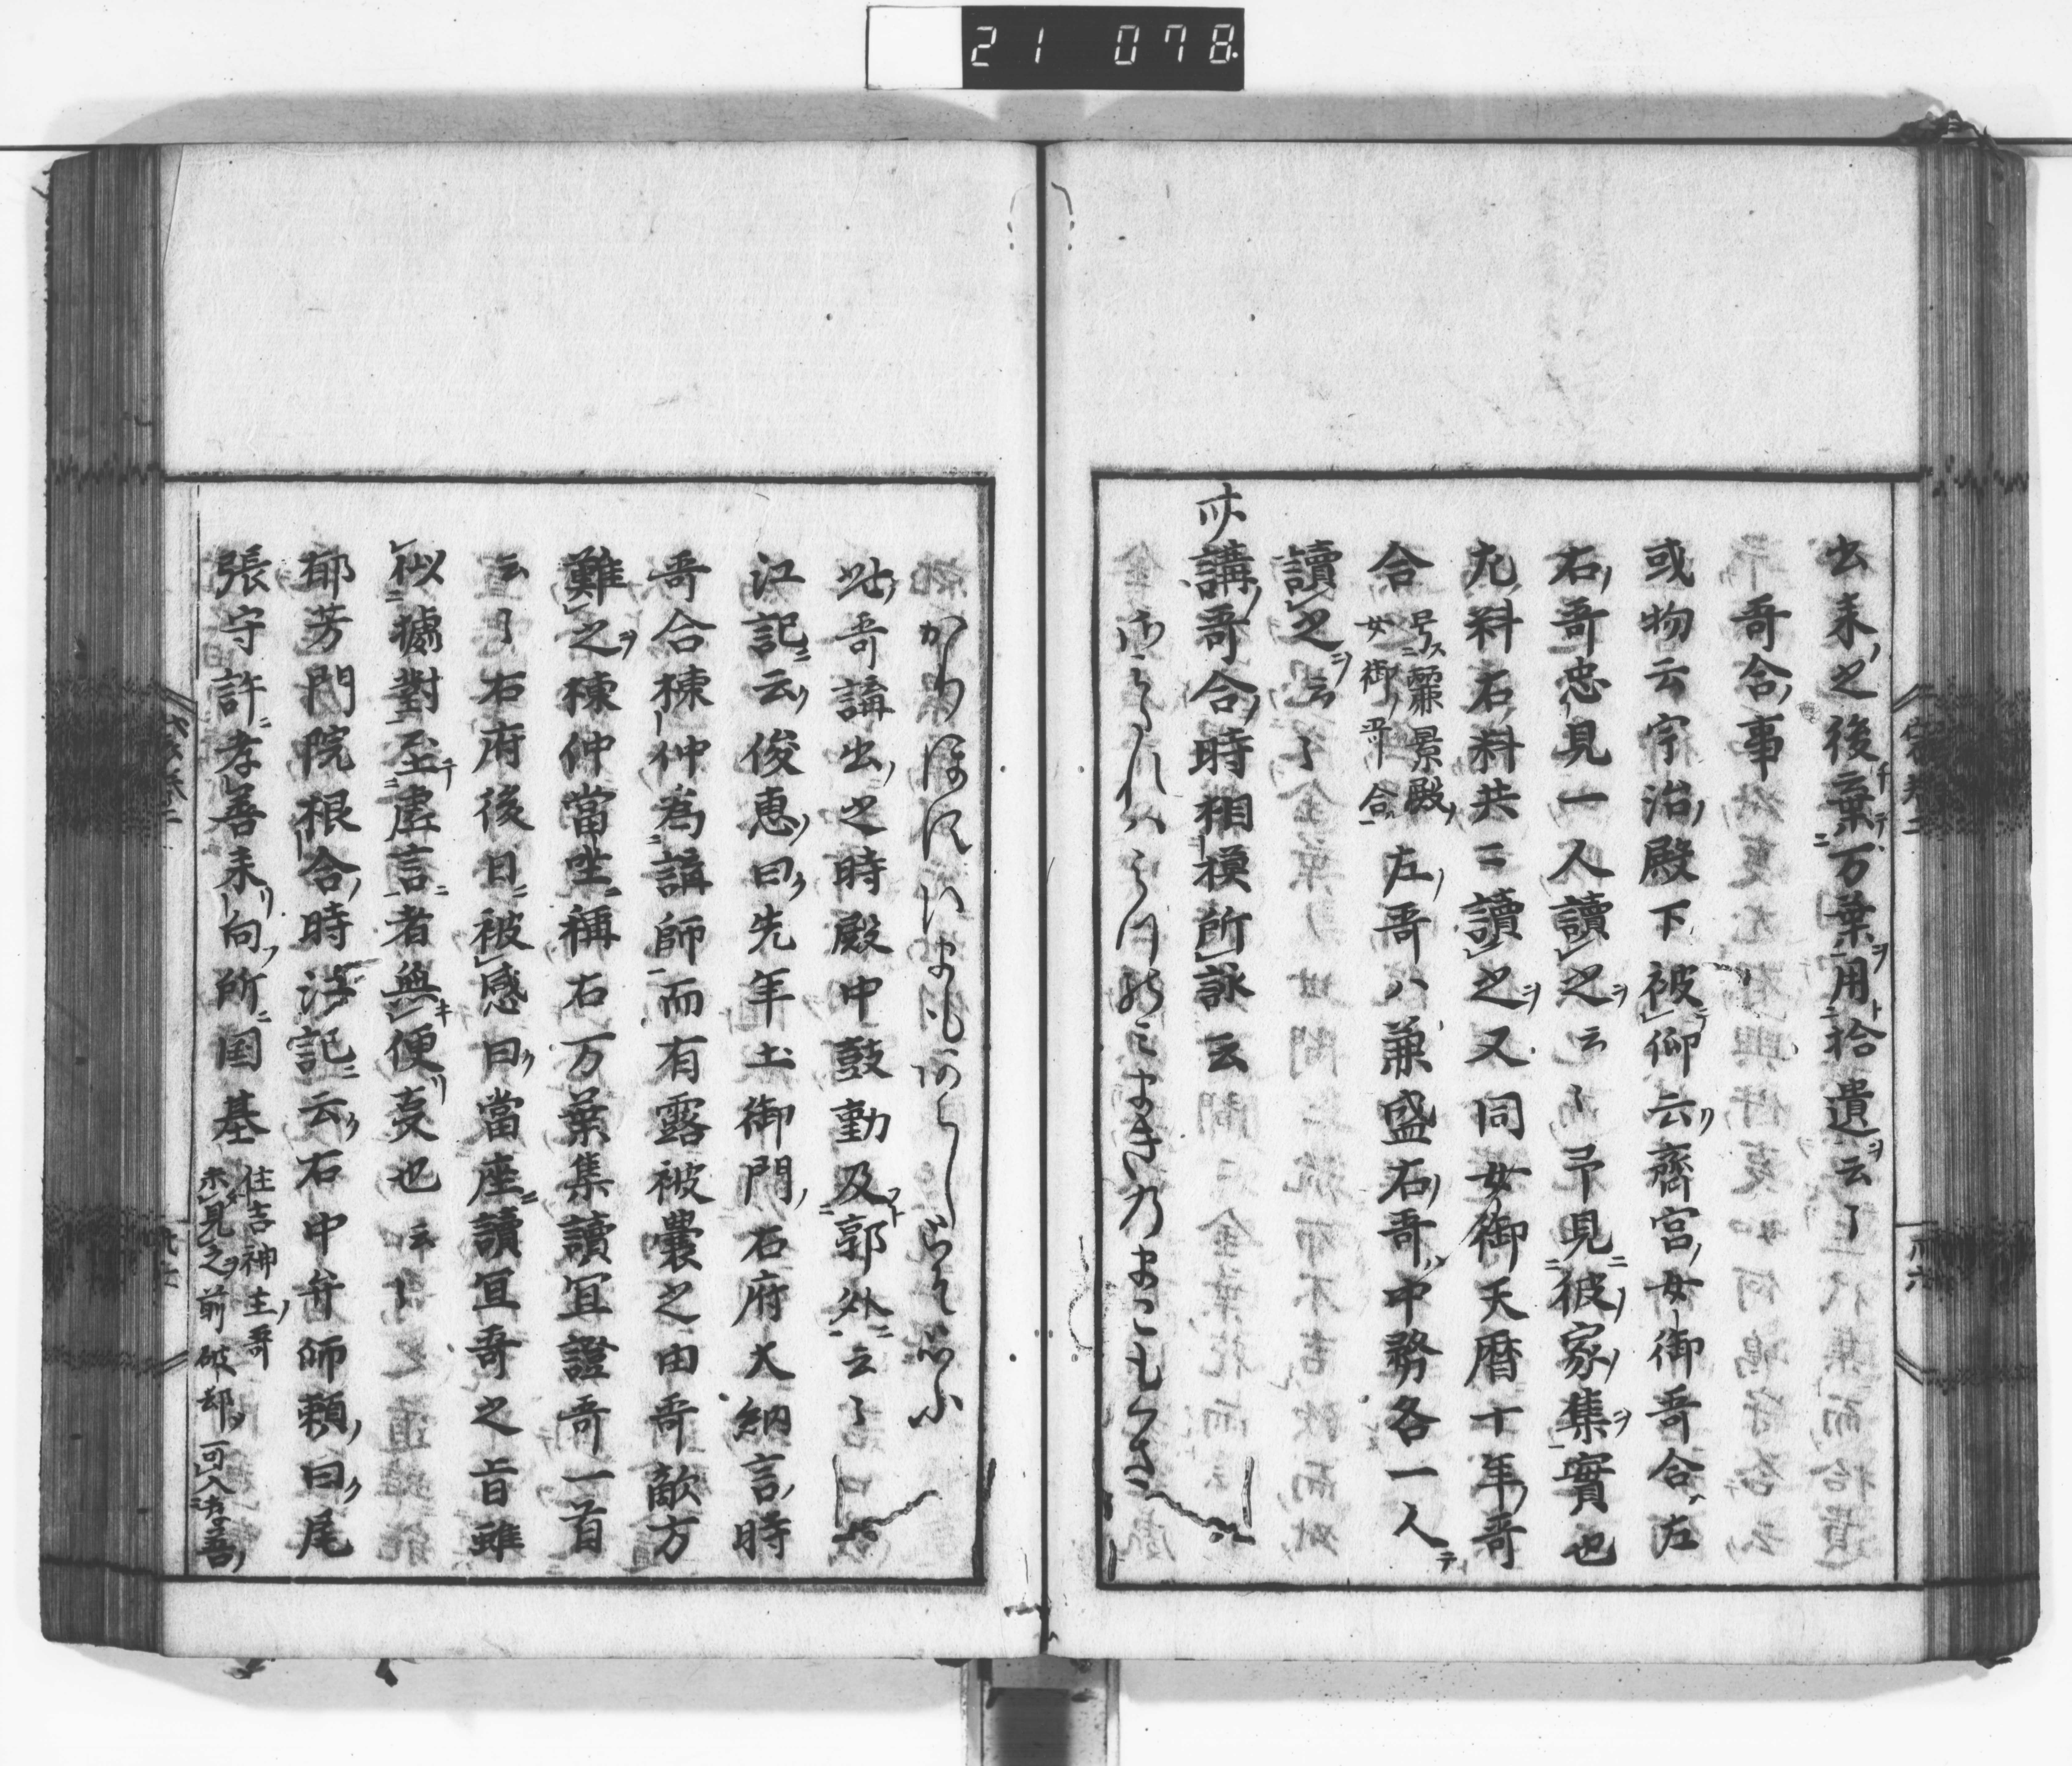 21 078
出来之後棄万葉用拾遺云々
哥合事
或物云宇治殿下被仰云齋宮女御哥合左
右哥忠見一人讀之云々予見彼家集實也
左料右料共ニ讀之又同女御天暦十年哥
合
号麗景殿
女御哥合
左哥ハ兼盛右哥中務各一人
讀之云々
講哥合時相模所詠云
さみたれハみつのみまきのまこもくさ
かりほすひまもあらしとそ思ふ
此哥講出之時殿中鼓動及郭外云々
江記云俊恵曰先年土御門右府大納言時
哥合棟仲為講師而有露被嚢之由哥敵方
難之棟仲當坐稱右万葉集讀冝證哥一首
云々右府後日被感曰當座讀冝哥之旨雖
似據對至虚言者無便支也云々
郁芳門院根合時江記云右中弁師頼曰尾
張守許孝善来向所国基
住吉神主哥
未見之前破却可入孝善